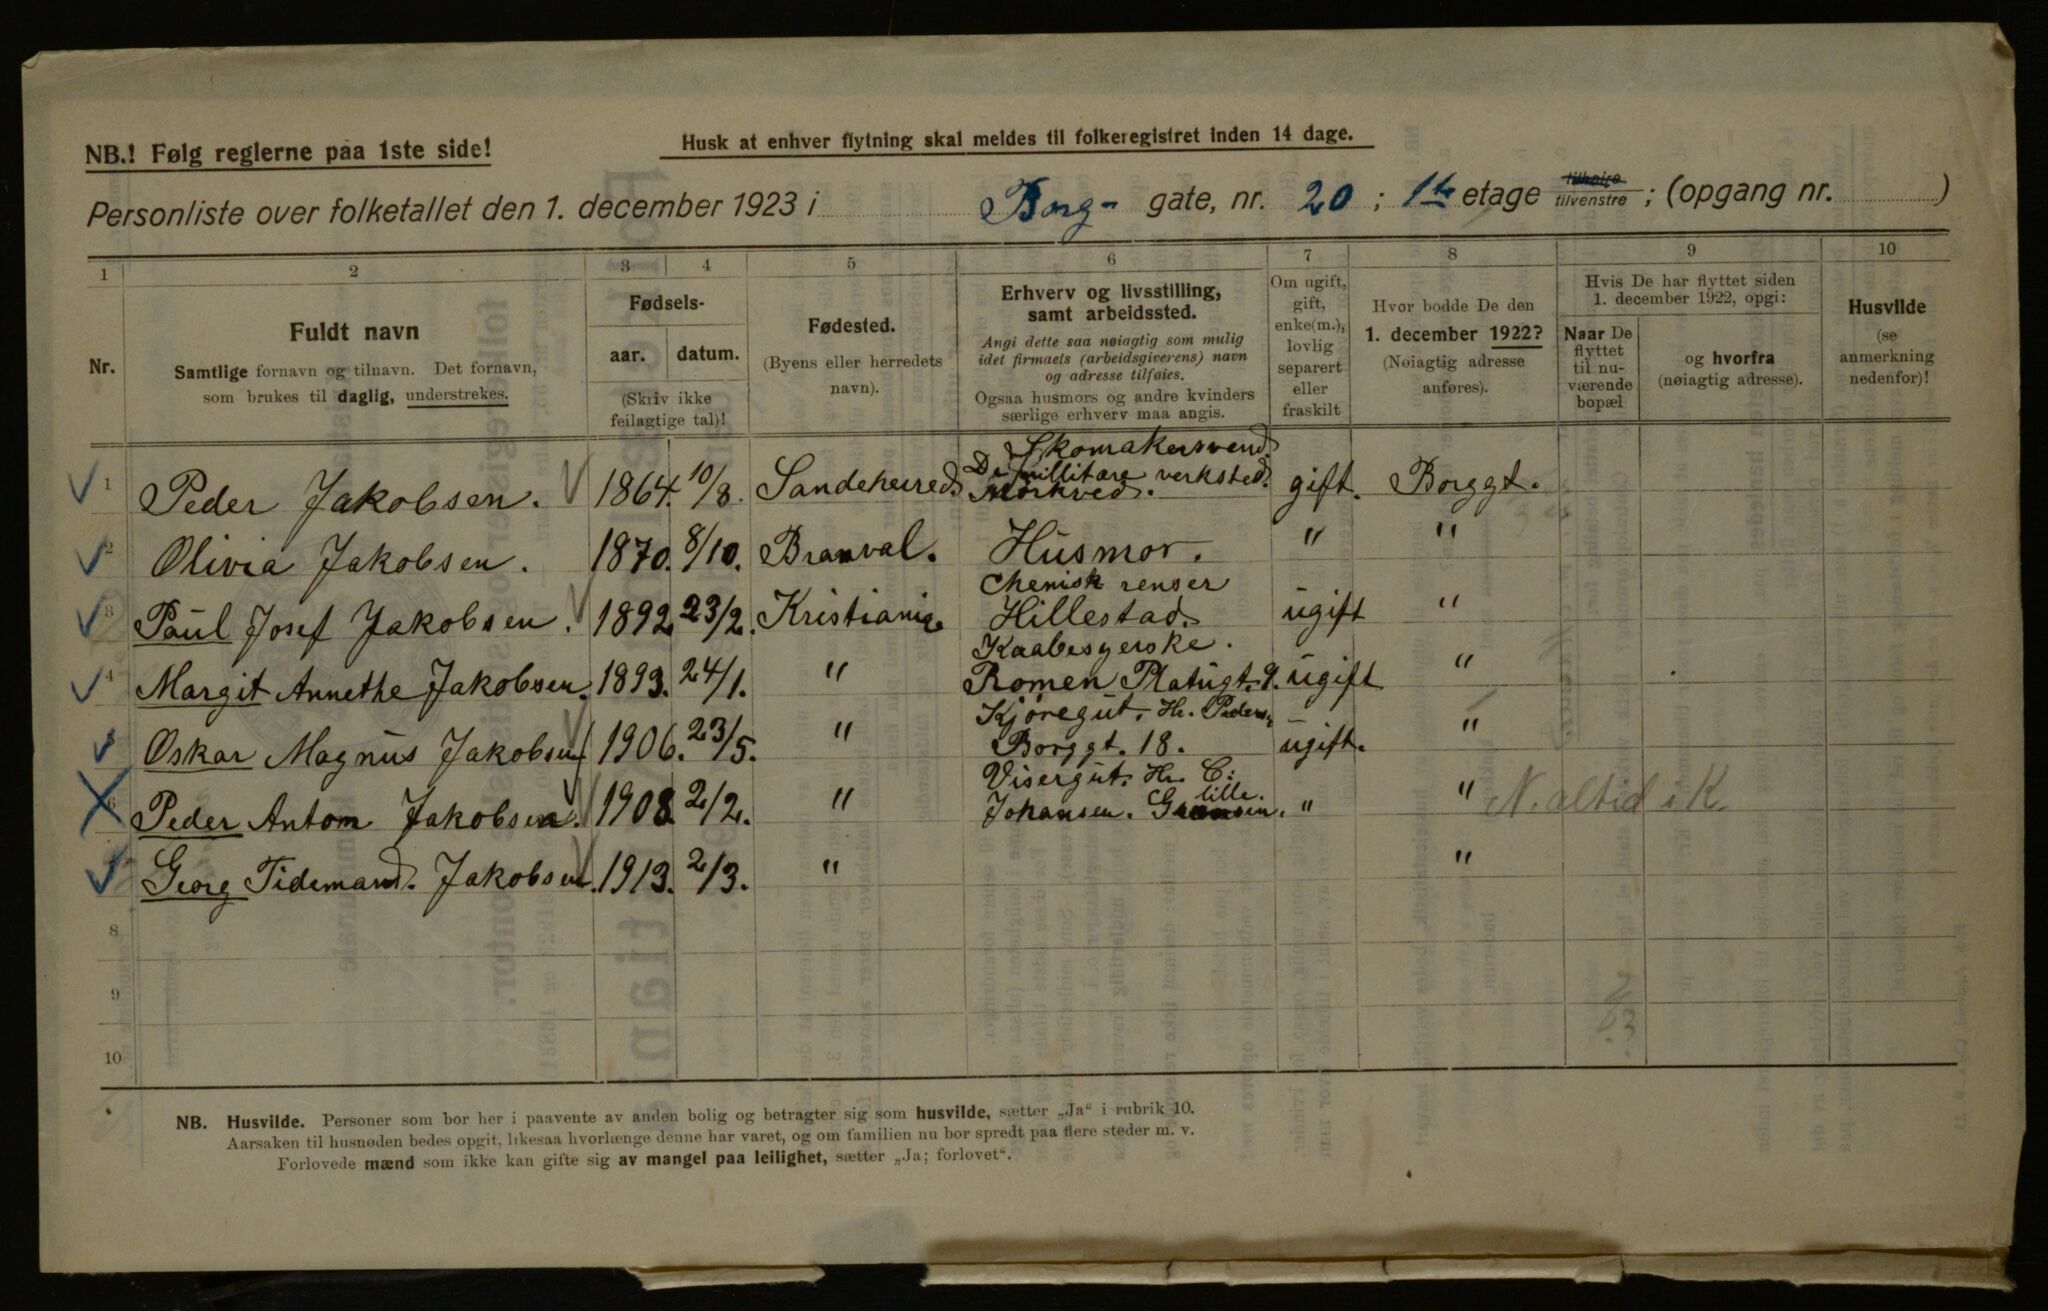 NB.! Følg reglerne paa 1ste side!
Husk at enhver flytning skal meldes til folkeregistret inden 14 dage.
Personliste over folketallet den 1. december 1923 i Borg- gate, nr. 20 ; 1ste etage tilhøire tilvenstre ; (opgang nr. )
1 2 3 4 5 6 7 8 9 10
Nr.
Fuldt navn
Samtlige fornavn og tilnavn. Det fornavn,
som brukes til daglig, understrekes.
Fødsels-
aar. datum.
(Skriv ikke
feilagtige tal)!
Fødested.
(Byens eller herredets
navn).
Erhverv og livsstilling,
samt arbeidssted.
Angi dette saa nøiagtig som mulig
idet firmaets (arbeidsgiverens) navn
og adresse tilføies.
Ogsaa husmors og andre kvinders
særlige erhverv maa angis.
Om ugift,
gift,
enke(m.),
lovlig
separert
eller
fraskilt
Hvor bodde De den
1. december 1922?
(Nøiagtig adresse
anføres).
Hvis De har flyttet siden
1. december 1922, opgi:
Naar De
flyttet
til nu-
værende
bopæl
og hvorfra
(nøiagtig adresse).
Husvilde
(se
anmerkning
nedenfor)!
Skomakersvend
De millitære verksted.
1 Peder Jakobsen. 1864. 10/8. Sandeherred. Mørkved. gift. Borggt.
2 Olivia Jakobsen. 1870. 8/10. Branval. Husmor. " "
Chemisk renser
3 Paul Josef Jakobsen. 1892 23/2. Kristiania Hillestad. ugift "
Kaabesyerske.
4 Margit Annethe Jakobsen. 1893. 24/1. " Romen Platugt. 9. ugift "
Kjøregut. Hr. Peders.
5 Oskar Magnus Jakobsen 1906. 23/5. " Borggt. 18. ugift. "
Visergut. Hr. C:
lille.
6 Peder Anton Jakobsen. 1908. 2/2. " Johansen. Grænsen. " " N. altid i K.
7 Georg Tidemand. Jakobsen. 1913. 2/3. " "
8
9
10
NB. Husvilde. Personer som bor her i paavente av anden bolig og betragter sig som husvilde, sætter „Ja" i rubrik 10.
Aarsaken til husnøden bedes opgit, likesaa hvorlænge denne har varet, og om familien nu bor spredt paa flere steder m. v.
Forlovede mænd som ikke kan gifte sig av mangel paa leilighet, sætter „Ja; forlovet".